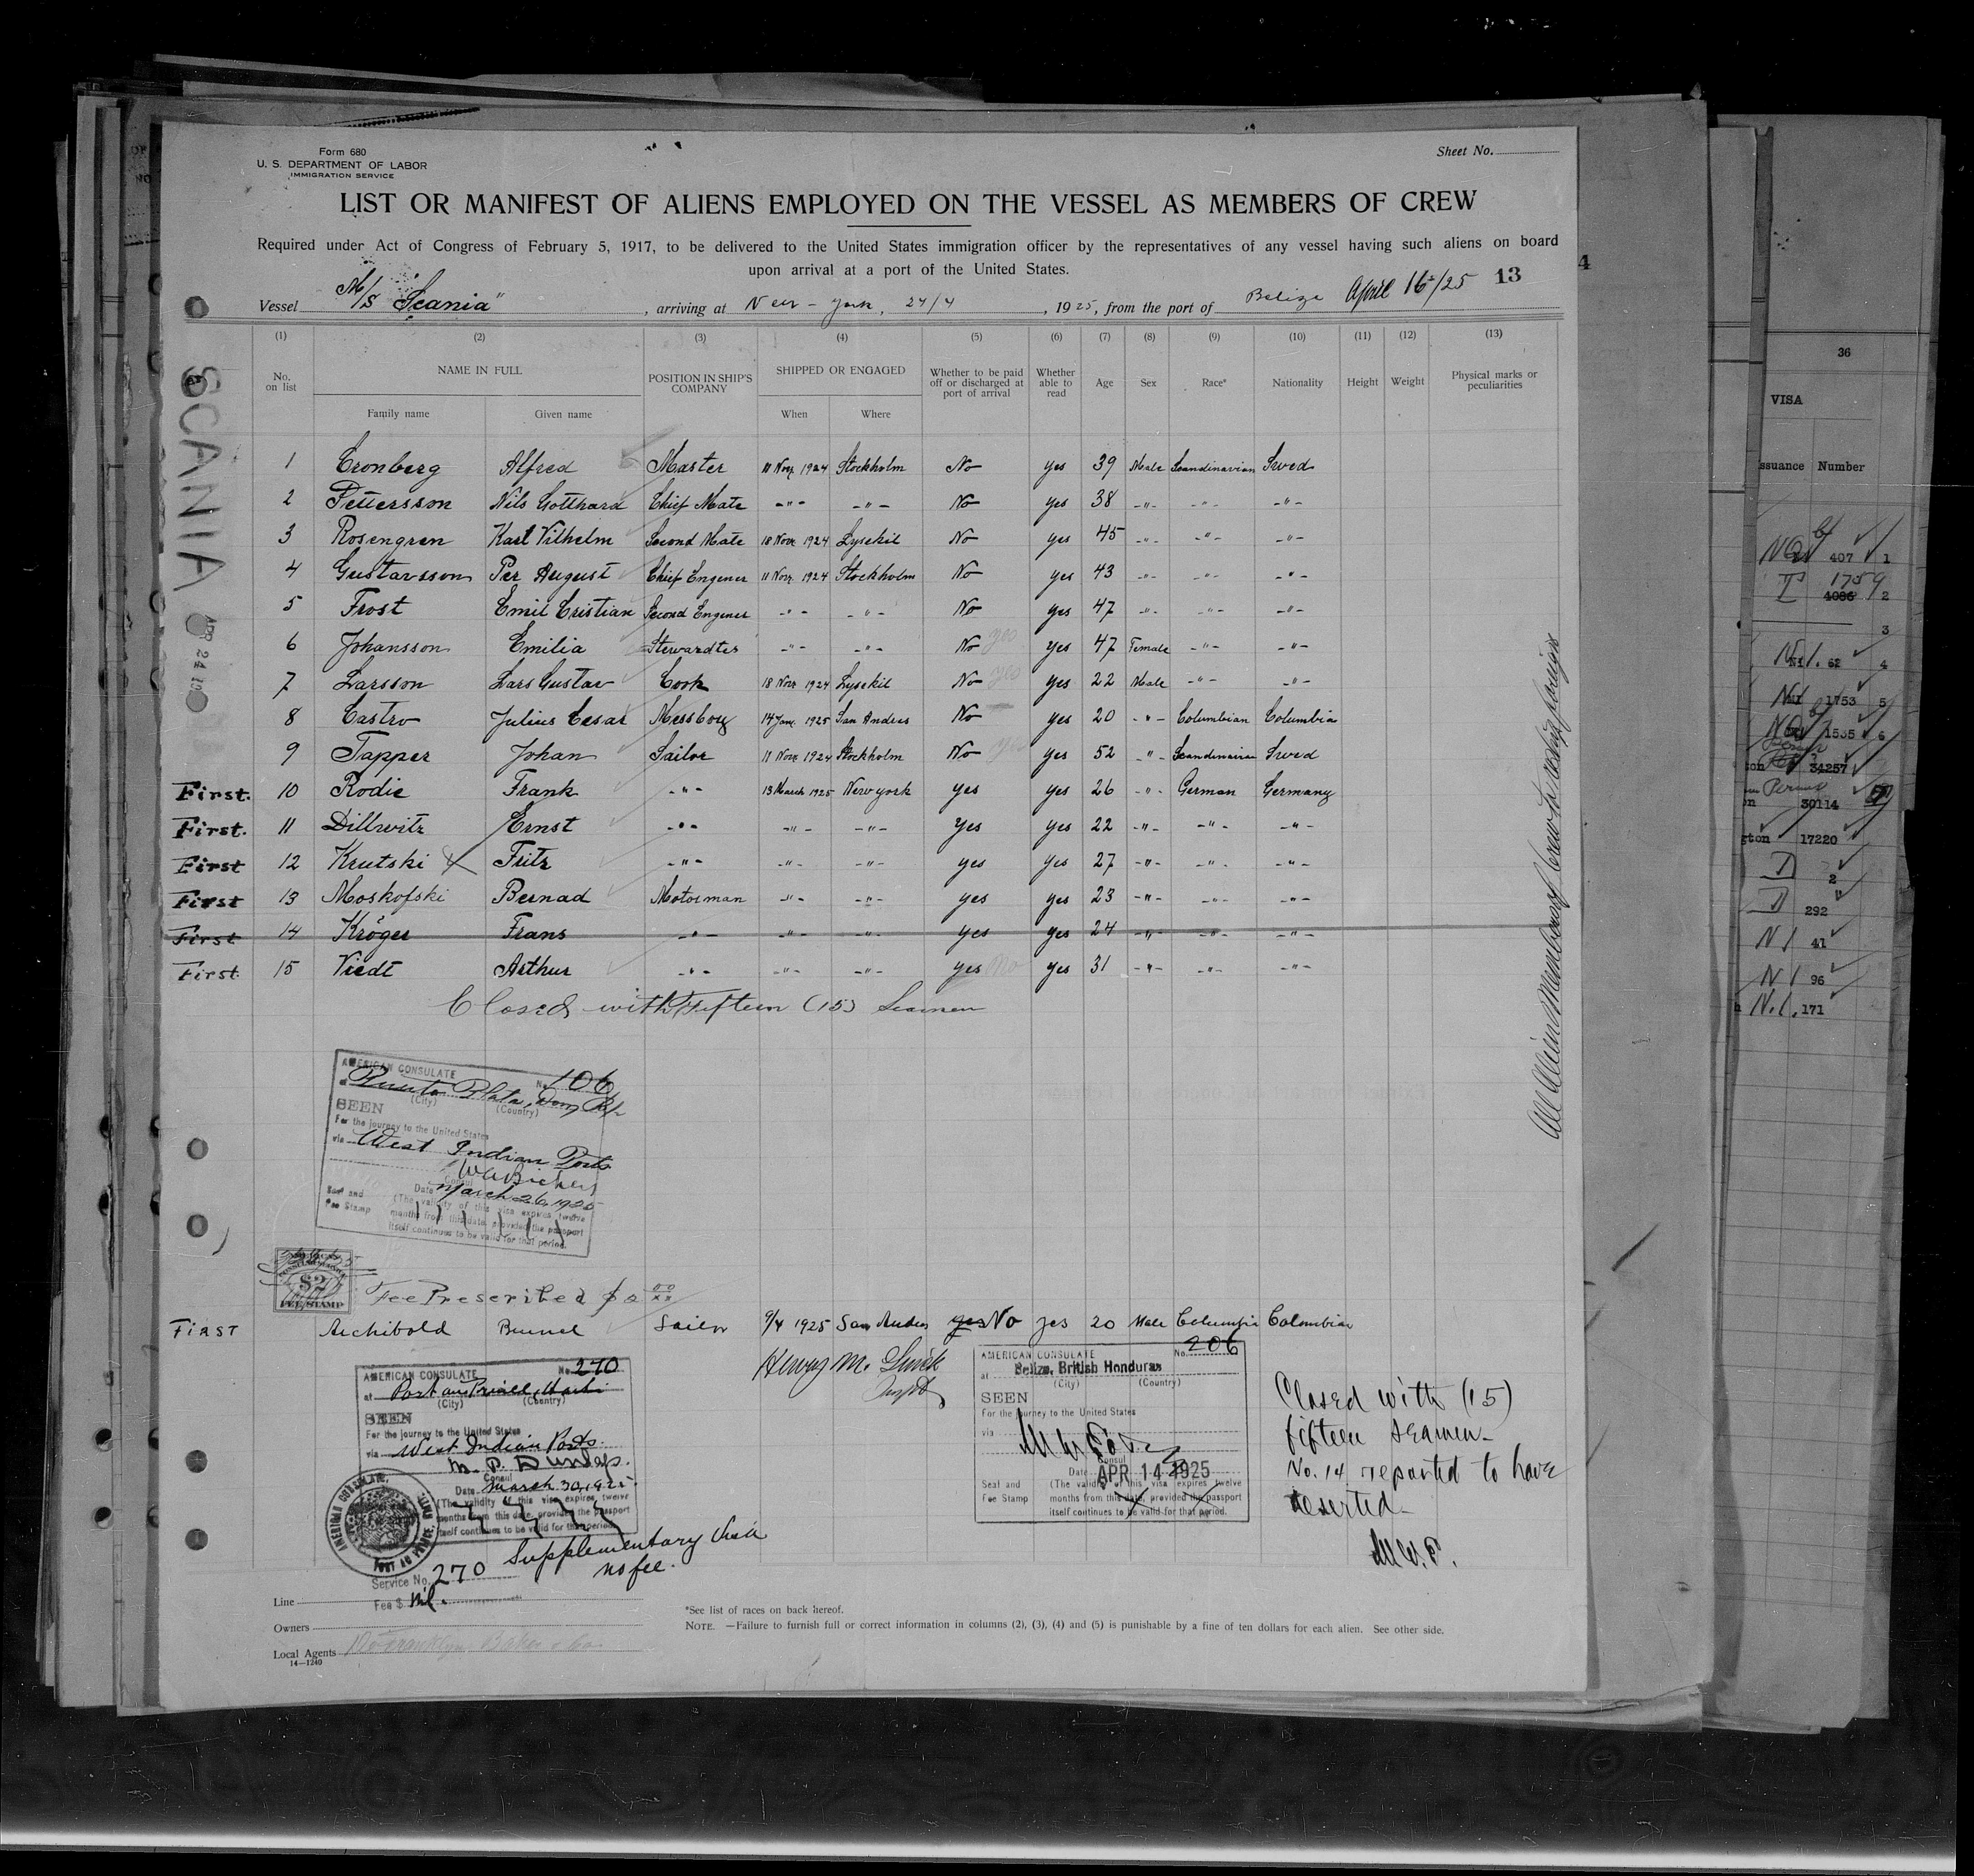 Form 680
U. S. DEPARTMENT OF LABOR
IMMIGRATION SERVICE
Sheet No.
LIST OR MANIFEST OF ALIENS EMPLOYED ON THE VESSEL AS MEMBERS OF CREW
Required under Act of Congress of February 5, 1917, to be delivered to the United States immigration officer by the representatives of any vessel having such aliens on board
upon arrival at a port of the United States.
Vessel M/S Scania" , arriving at New-york, 24/4 , 1925, from the port of Belize April 16/25 13
4
(1) (2) (3) (4) (5) (6) (7) (8) (9) (10) (11) (12) (13)
No. on list NAME IN FULL Family name Given name POSITION IN SHIP'S COMPANY SHIPPED OR ENGAGED When Where Whether to be paid off or discharged at port of arrival Whether able to read Age Sex Race* Nationality Height Weight Physical marks or peculiarities
1 Cronberg Alfred Master 11 Nov. 1924 Stockholm No yes 39 Male Scandinavian Swed
2 Pettersson Nils Gotthard Chief Mate -"- -"- No yes 38 -"- -"- -"-
3 Rosengren Karl Vilhelm Second Mate 18 Nov. 1924 Lysekil No yes 45 -"- -"- -"-
4 Gustavsson Per August Chief Engener 11 Nov. 1924 Stockholm No yes 43 -"- -"- -"-
5 Frost Emil Cristian Second Engener -"- -"- No yes 47 -"- -"- -"-
6 Johansson Emilia Stewardtes -"- -"- No yes yes 47 Female -"- -"-
7 Larsson Lars Gustav Cook 18 Nov. 1924 Lysekil No yes yes 22 Male -"- -"-
8 Castro Julius Cesar Messboy 14 Jan. 1925 San Andres No yes 20 -"- Columbian Columbia
9 Tapper Johan Sailor 11 Nov. 1924 Stockholm No yes yes 52 -"- Scandinavian Swed
First. 10 Rodie Frank -"- 13 March 1925 New york yes yes 26 -"- German Germany
First. 11 Dillwitz Ernst -"- -"- -"- yes yes 22 -"- -"- -"-
First 12 Krutski Fritz -"- -"- -"- yes yes 27 -"- -"- -"-
First 13 Moskofski Bernad Motorman -"- -"- yes yes 23 -"- -"- -"-
First 14 Kröger Frans -"- -"- -"- yes yes 24 -"- -"- -"-
First. 15 Viedt Arthur -"- -"- -"- yes No yes 31 -"- -"- -"-
Closed with Fifteen (15) Seamen
AMERICAN CONSULATE No. 106
at Puerto Plata, Dom. Rep.
(City) (Country)
SEEN
For the journey to the United States
via West Indian Ports
Consul
Date March 26, 1925
Seal and Fee Stamp
(The validity of this visa expires twelve
months from this date, provided the passport
itself continues to be valid for that period.)
$2
FEE STAMP
Fee Prescribed $2 00/xx
FIRST Archibold Sailor 9/4 1925 San Andres yes No yes 20 Male Columbia Colombian
AMERICAN CONSULATE No. 270
at Port au Prince, Haiti
(City) (Country)
SEEN
For the journey to the United States
via West Indian Ports.
M. P. Dunlap.
Consul
Date March 30, 1925.
(The validity of this visa expires twelve
months from this date, provided the passport
itself continues to be valid for that period.)
Service No. 270
Fee $ Nil.
Supplementary visa
no fee.
AMERICAN CONSULATE No. 206
at Belize, British Honduras
(City) (Country)
SEEN
For the journey to the United States
via
Consul
Date APR 14 1925
Seal and Fee Stamp
(The validity of this visa expires twelve
months from this date, provided the passport
itself continues to be valid for that period.
Closed with (15)
fifteen seamen-
No. 14 reported to have
deserted-
Line
Owners
Local Agents Franklyn Baker & Co.
14-1240
*See list of races on back hereof.
NOTE. —Failure to furnish full or correct information in columns (2), (3), (4) and (5) is punishable by a fine of ten dollars for each alien. See other side.
SCANIA
All Alien Members of Crew
36
VISA
ssuance Number
407 1
1759
4086 2
3
62 4
1753 5
1535 6
34257
30114
gton 17220
2
292
N1 41
N1 96
N.1. 171